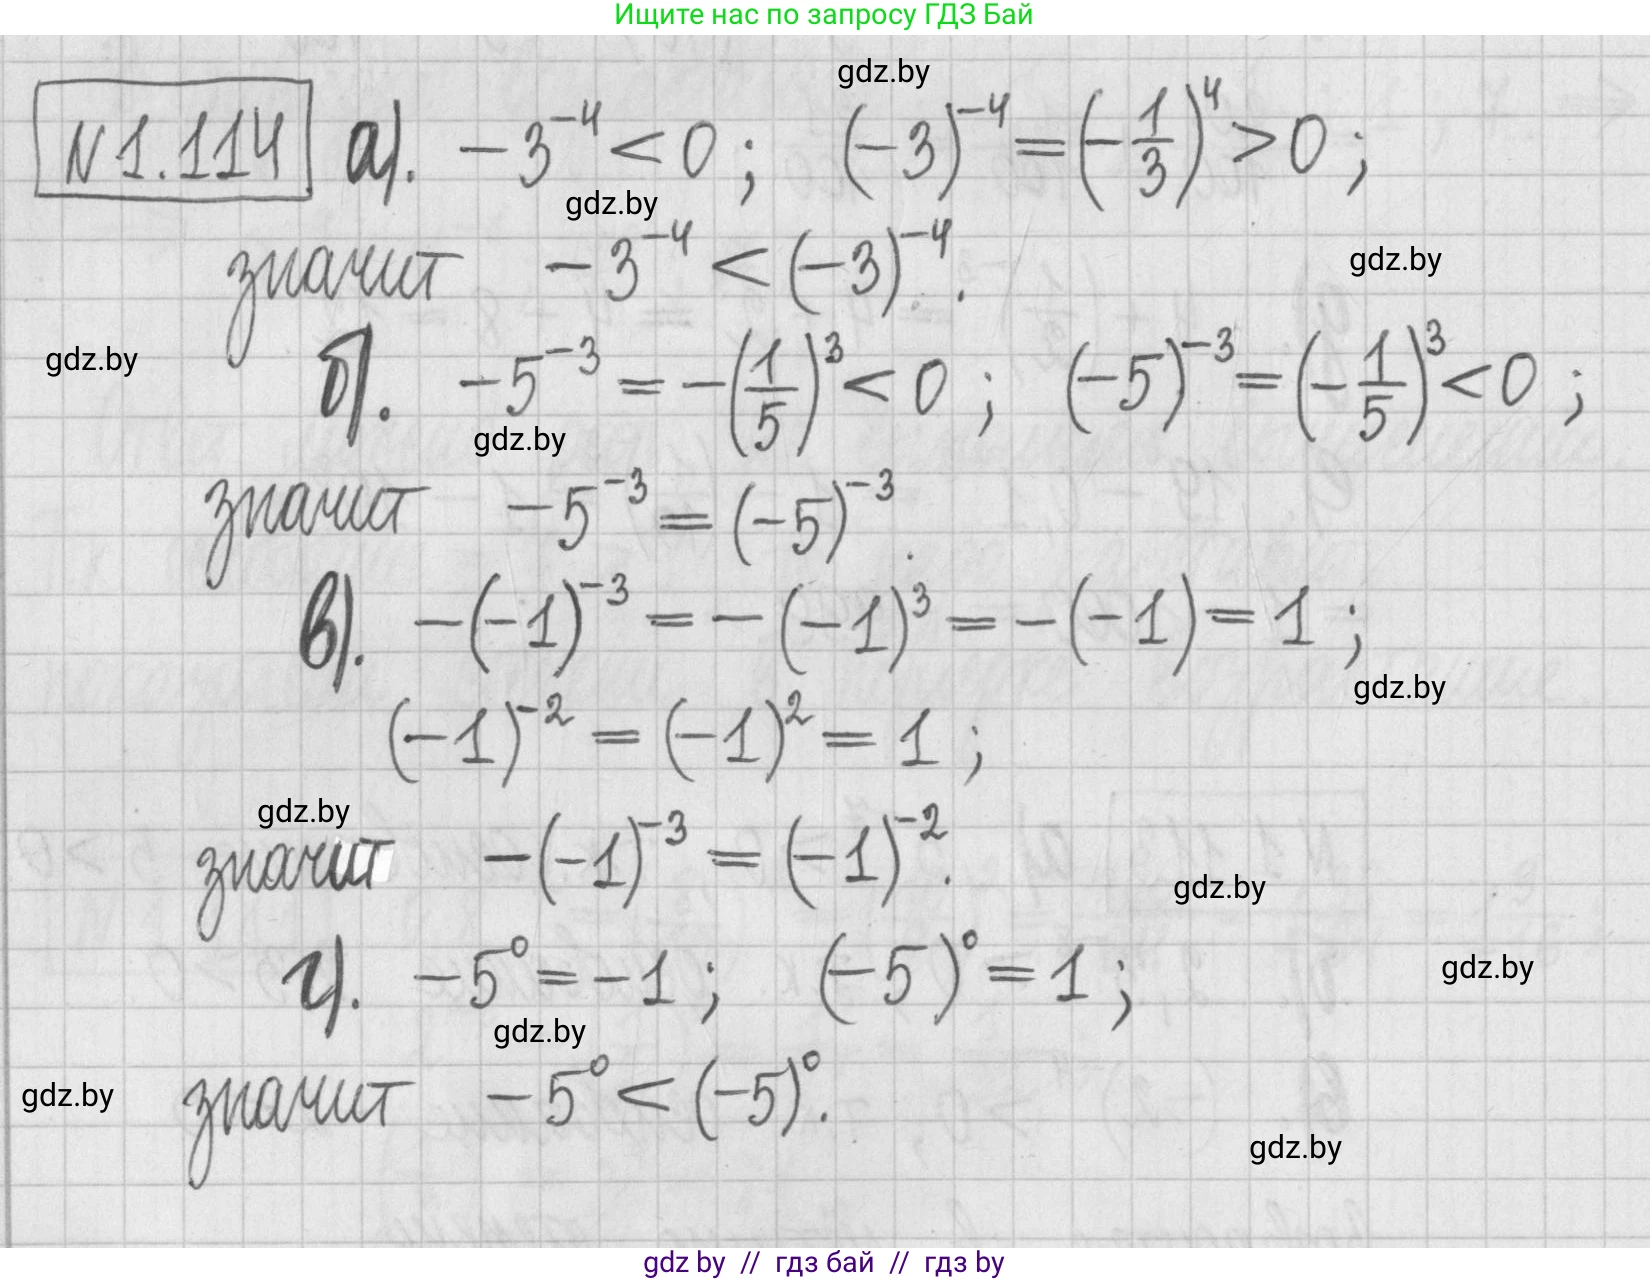 Ищите нас по запросу ГДЗ Бай
gdz.by
N 1.114 а). -3^{-4} < 0 ; (-3)^{-4} = (-1/3)^4 > 0 ;
gdz.by
значит -3^{-4} < (-3)^{-4}.
gdz.by
gdz.by
б). -5^{-3} = -(1/5)^3 < 0 ; (-5)^{-3} = (-1/5)^3 < 0 ;
gdz.by
значит -5^{-3} = (-5)^{-3}.
в). -(-1)^{-3} = -(-1)^3 = -(-1) = 1 ;
gdz.by
(-1)^{-2} = (-1)^2 = 1 ;
gdz.by
значит -(-1)^{-3} = (-1)^{-2}.
gdz.by
г). -5^0 = -1 ; (-5)^0 = 1 ;
gdz.by
gdz.by
значит -5^0 < (-5)^0.
gdz.by
gdz.by
gdz by // гдз бай // гдз by